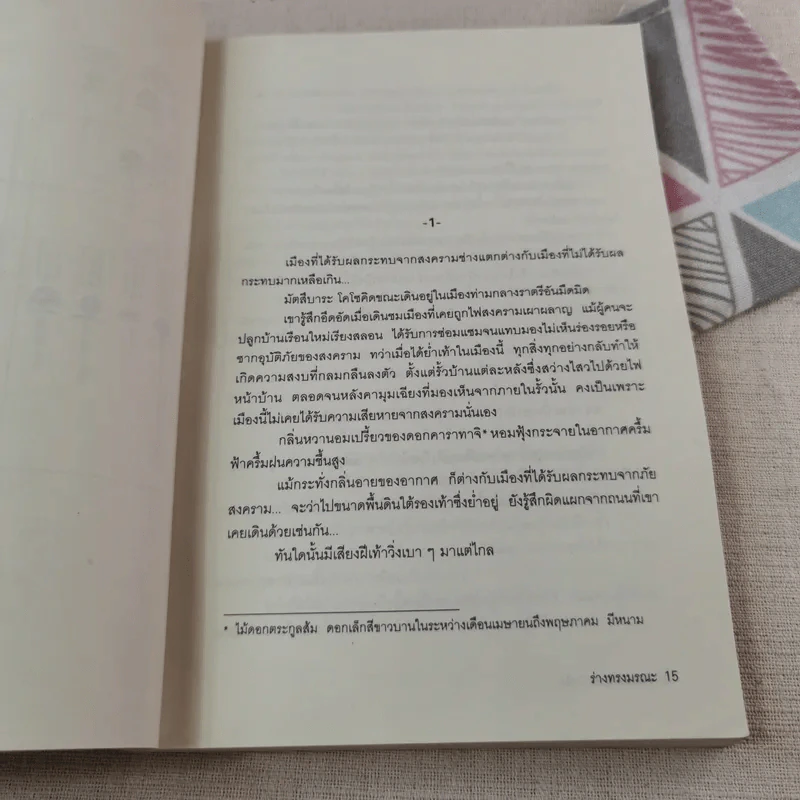 -1-
เมืองที่ได้รับผลกระทบจากสงครามช่างแตกต่างกับเมืองที่ไม่ได้รับผล
กระทบมากเหลือเกิน...
มัตสึบาระ โคโซคิดขณะเดินอยู่ในเมืองท่ามกลางราตรีอันมืดมิด
เขารู้สึกอึดอัดเมื่อเดินชมเมืองที่เคยถูกไฟสงครามเผาผลาญ แม้ผู้คนจะ
ปลูกบ้านเรือนใหม่เรียงสลอน ได้รับการซ่อมแซมจนแทบมองไม่เห็นร่องรอยหรือ
ซากอุบัติภัยของสงคราม ทว่าเมื่อได้ย่ำเท้าในเมืองนี้ ทุกสิ่งทุกอย่างกลับทำให้
เกิดความสงบที่กลมกลืนลงตัว ตั้งแต่รั้วบ้านแต่ละหลังซึ่งสว่างไสวไปด้วยไฟ
หน้าบ้าน ตลอดจนหลังคามุมเฉียงที่มองเห็นจากภายในรั้วนั้น คงเป็นเพราะ
เมืองนี้ไม่เคยได้รับความเสียหายจากสงครามนั่นเอง
กลิ่นหวานอมเปรี้ยวของดอกคาราทาจิ* หอมฟุ้งกระจายในอากาศครึ้ม
ฟ้าครึ้มฝนความชื้นสูง
แม้กระทั่งกลิ่นอายของอากาศ ก็ต่างกับเมืองที่ได้รับผลกระทบจากภัย
สงคราม... จะว่าไปขนาดพื้นดินใต้รองเท้าซึ่งย่ำอยู่ ยังรู้สึกผิดแผกจากถนนที่เขา
เคยเดินด้วยเช่นกัน...
ทันใดนั้นมีเสียงฝีเท้าวิ่งเบา ๆ มาแต่ไกล
* ไม้ดอกตระกูลส้ม ดอกเล็กสีขาวบานในระหว่างเดือนเมษายนถึงพฤษภาคม มีหนาม
ร่างทรงมรณะ 15